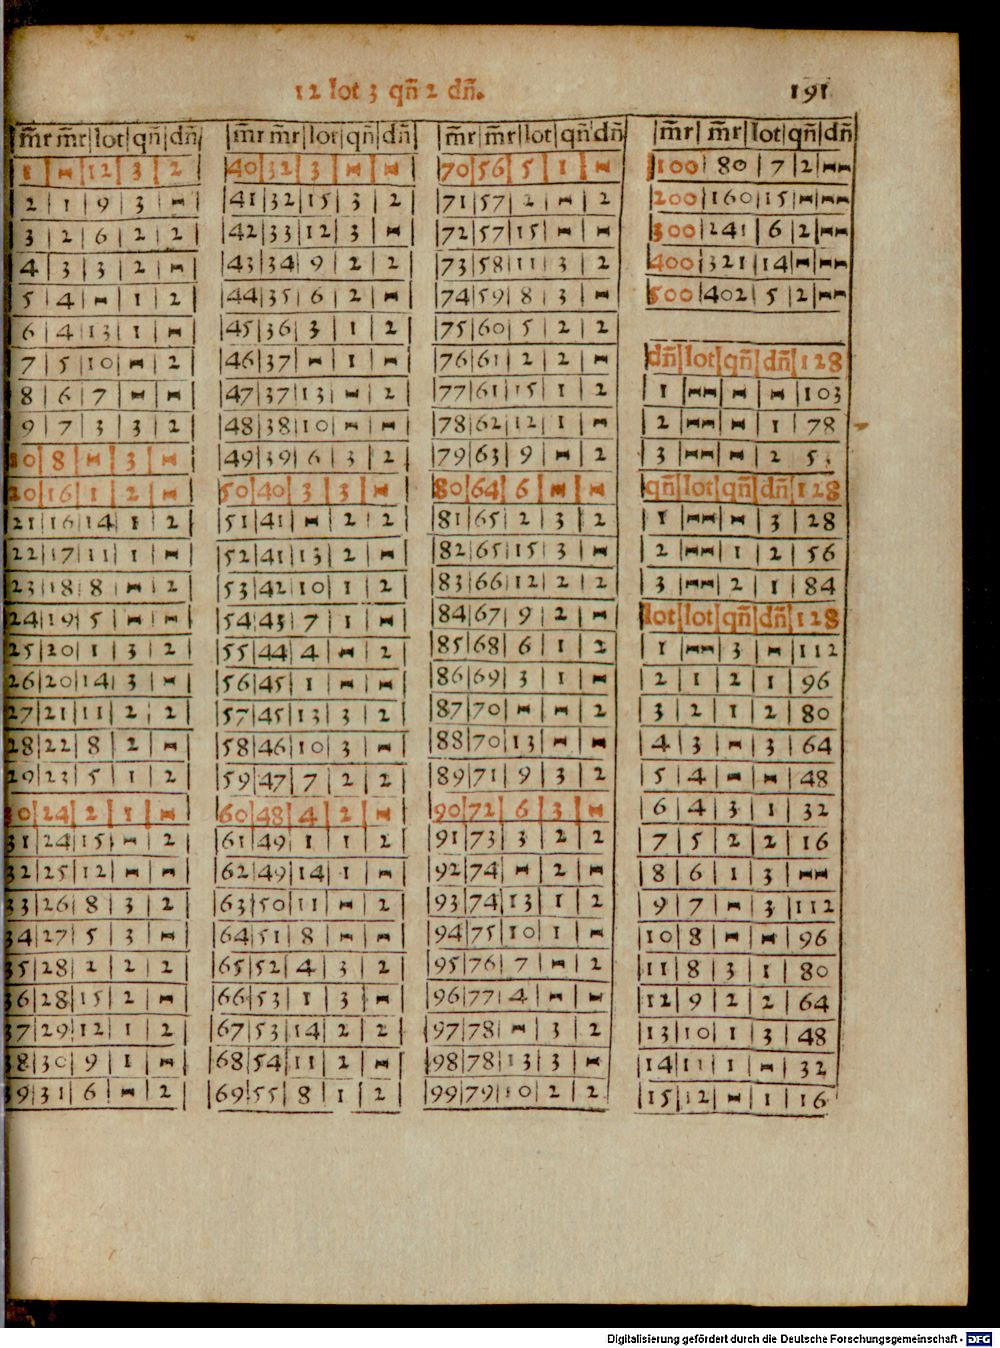 12 lot 3 qñ 2 dñ.
191
m̃r m̃r|lot|qñ|dñ
1|⋈|12|3|2
2|1|9|3|⋈
3|2|6|2|2
4|3|3|2|⋈
5|4|⋈|1|2
6|4|13|1|⋈
7|5|10|⋈|2
8|6|7|⋈|⋈
9|7|3|3|2
10|8|⋈|3|⋈
20|16|1|2|⋈
21|16|14|1|2
22|17|11|1|⋈
23|18|8|⋈|2
24|19|5|⋈|⋈
25|20|1|3|2
26|20|14|3|⋈
27|21|11|2|2
28|22|8|2|⋈
29|23|5|1|2
30|24|2|1|⋈
31|24|15|⋈|2
32|25|12|⋈|⋈
33|26|8|3|2
34|27|5|3|⋈
35|28|2|2|2
36|28|15|2|⋈
37|29|12|1|2
38|30|9|1|⋈
39|31|6|⋈|2
m̃r m̃r|lot|qñ|dñ
40|32|3|⋈|⋈
41|32|15|3|2
42|33|12|3|⋈
43|34|9|2|2
44|35|6|2|⋈
45|36|3|1|2
46|37|⋈|1|⋈
47|37|13|⋈|2
48|38|10|⋈|⋈
49|39|6|3|2
50|40|3|3|⋈
51|41|⋈|2|2
52|41|13|2|⋈
53|42|10|1|2
54|43|7|1|⋈
55|44|4|⋈|2
56|45|1|⋈|⋈
57|45|13|3|2
58|46|10|3|⋈
59|47|7|2|2
60|48|4|2|⋈
61|49|1|1|2
62|49|14|1|⋈
63|50|11|⋈|2
64|51|8|⋈|⋈
65|52|4|3|2
66|53|1|3|⋈
67|53|14|2|2
68|54|11|2|⋈
69|55|8|1|2
m̃r|m̃r|lot|qñ dñ
70|56|5|1|⋈
71|57|2|⋈|2
72|57|15|⋈|⋈
73|58|11|3|2
74|59|8|3|⋈
75|60|5|2|2
76|61|2|2|⋈
77|61|15|1|2
78|62|12|1|⋈
79|63|9|⋈|2
80|64|6|⋈|⋈
81|65|2|3|2
82|65|15|3|⋈
83|66|12|2|2
84|67|9|2|⋈
85|68|6|1|2
86|69|3|1|⋈
87|70|⋈|⋈|2
88|70|13|⋈|⋈
89|71|9|3|2
90|72|6|3|⋈
91|73|3|2|2
92|74|⋈|2|⋈
93|74|13|1|2
94|75|10|1|⋈
95|76|7|⋈|2
96|77|4|⋈|⋈
97|78|⋈|3|2
98|78|13|3|⋈
99|79|10|2|2
m̃r|m̃r|lot|qñ|dñ
100|80|7|2|⋈⋈
200|160|15|⋈|⋈⋈
300|241|6|2|⋈⋈
400|321|14|⋈|⋈⋈
500|402|5|2|⋈⋈
dñ|lot|qñ|dñ|128
1|⋈⋈|⋈|⋈|103
2|⋈⋈|⋈|1|78
3|⋈⋈|⋈|2|53
qñ|lot|qñ|dñ|128
1|⋈⋈|⋈|3|28
2|⋈⋈|1|2|56
3|⋈⋈|2|1|84
lot|lot|qñ|dñ|128
1|⋈⋈|3|⋈|112
2|1|2|1|96
3|2|1|2|80
4|3|⋈|3|64
5|4|⋈|⋈|48
6|4|3|1|32
7|5|2|2|16
8|6|1|3|⋈⋈
9|7|⋈|3|112
10|8|⋈|⋈|96
11|8|3|1|80
12|9|2|2|64
13|10|1|3|48
14|11|1|⋈|32
15|12|⋈|1|16
Digitalisierung gefördert durch die Deutsche Forschungsgemeinschaft - DFG